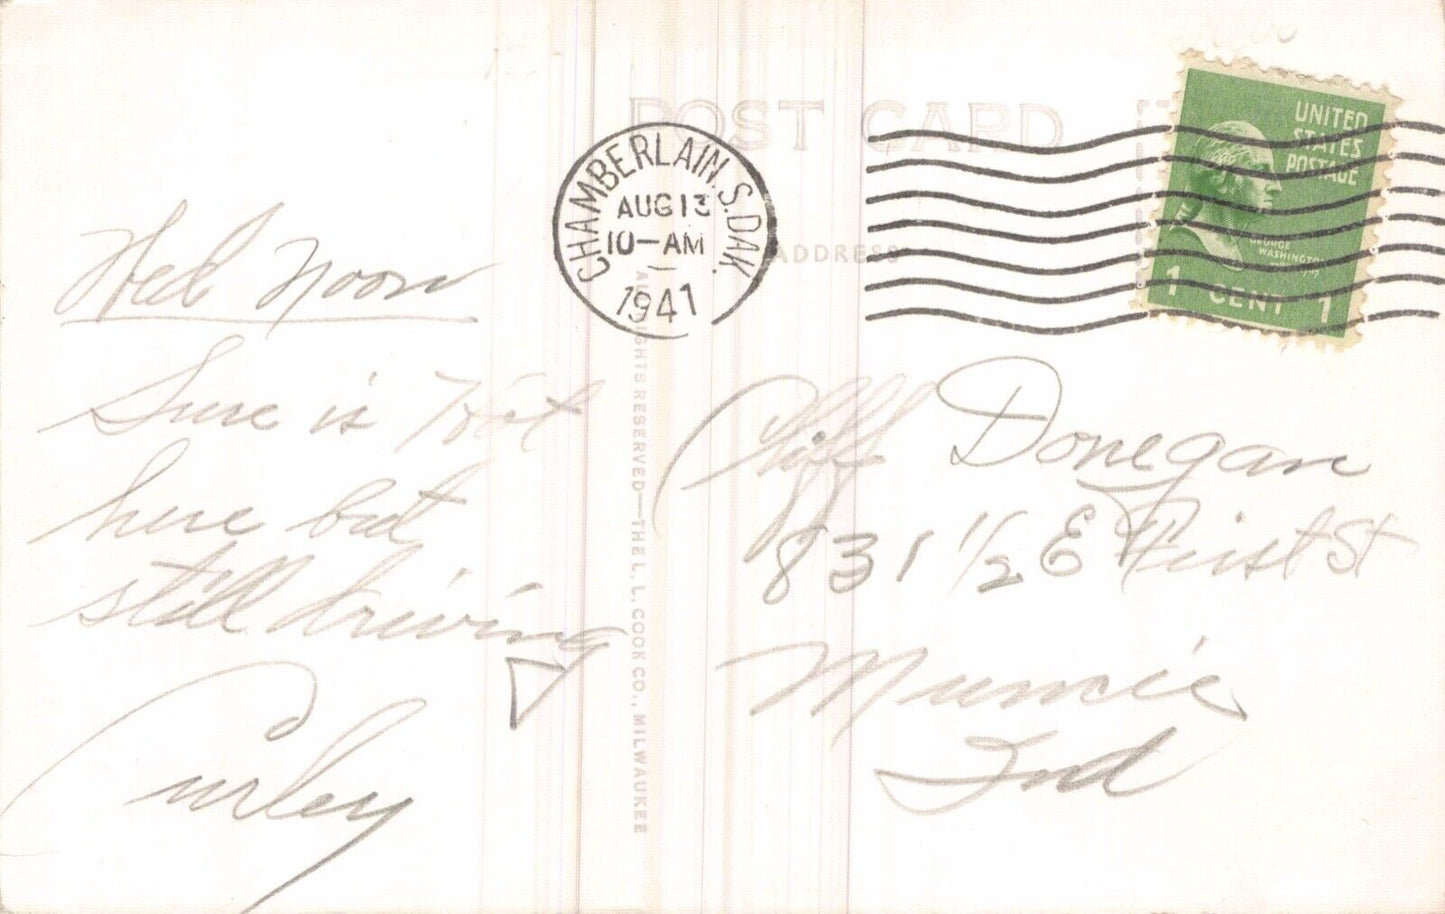 POST CARD
CHAMBERLAIN, S.DAK.
AUG 13
10-AM
1941
UNITED
STATES
POSTAGE
GEORGE
WASHINGTON
1 CENT 1
ADDRESS
Wed Noon
Sure is Hot
here but
still driving
Curley
ALL RIGHTS RESERVED—THE L. L. COOK CO., MILWAUKEE
Cliff Donegan
831 1/2 E First St
Muncie
Ind